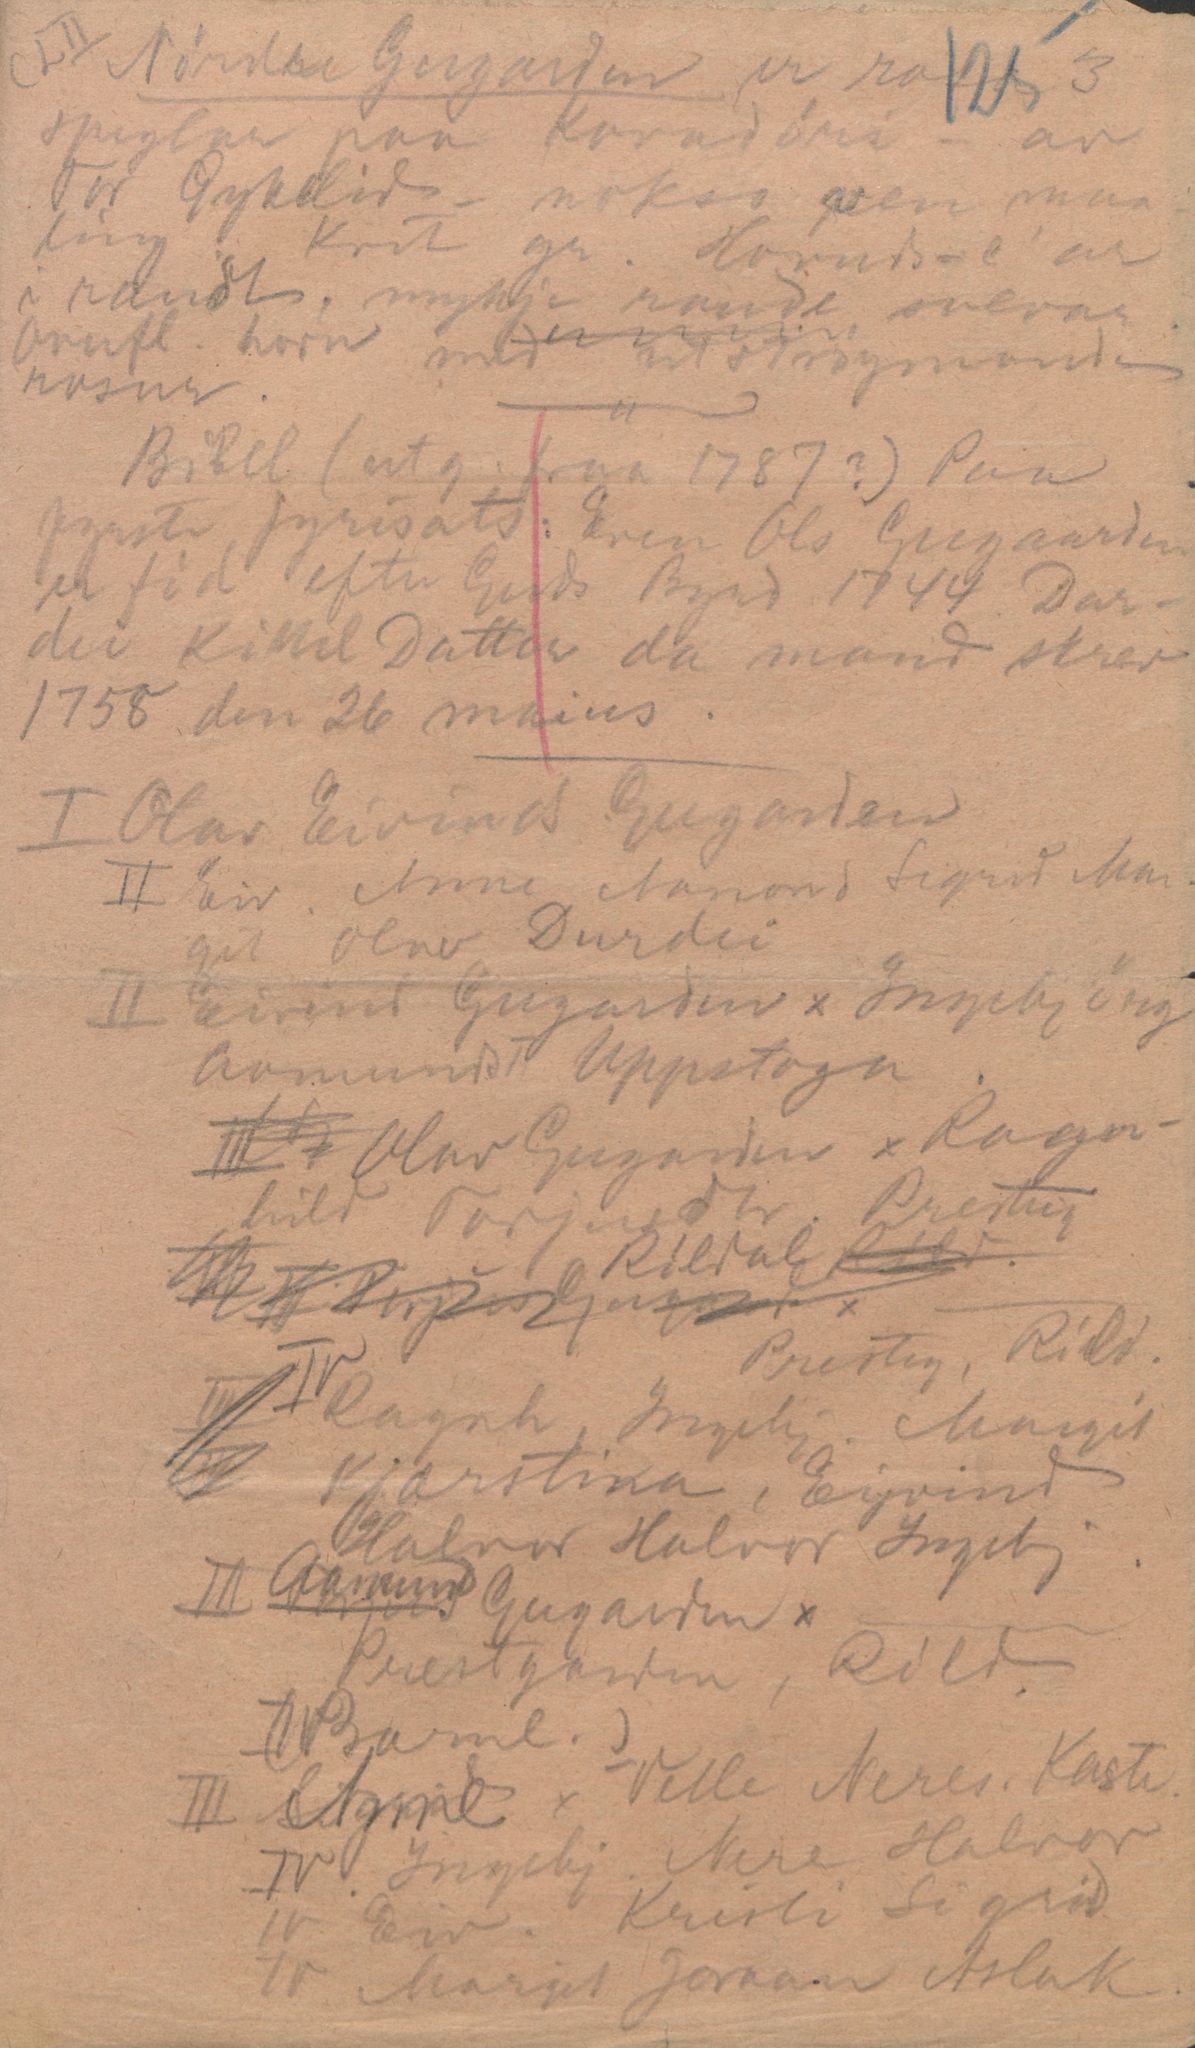 Nørdre Gugarden er 3
speglar paa - av
Tor - nokso pen maa-
ling. Kvit gr.
i raudt. mykje raude,
horn med
rosur.
Bibel (utg. fraa 1787?) Paa
fyrste : Even Ols Gugaarden
er fød efter Guds Byrd 1744 Dor-
dei Kittel Datter da mand skrev
1758 den 26 maius.
I Olav Eivinds Gugarden
II Eiv. Anne Aamond Sigrid Mar-
git Olav Durdei
II Eivind Gugarden x Ingebjörg
Aamundsd Uppstoga.
III Olav Gugarden x Ragn-
hild Torjusdtr. Prestg
Rildal
Prestg, Rild.
IV Ragnh. Ingebj. Margit
Kjærstina, Eivind
Halvor Halvor Ingebj.
III Aamund Gugarden x
Prestgarden, Rild.
(IV Barnl.)
III Sigrid x Velle Neres. Kaste.
IV. Ingebj. Nere Halvor
IV Eiv. Kristi Sigrid
IV Margit Joraan Aslak.